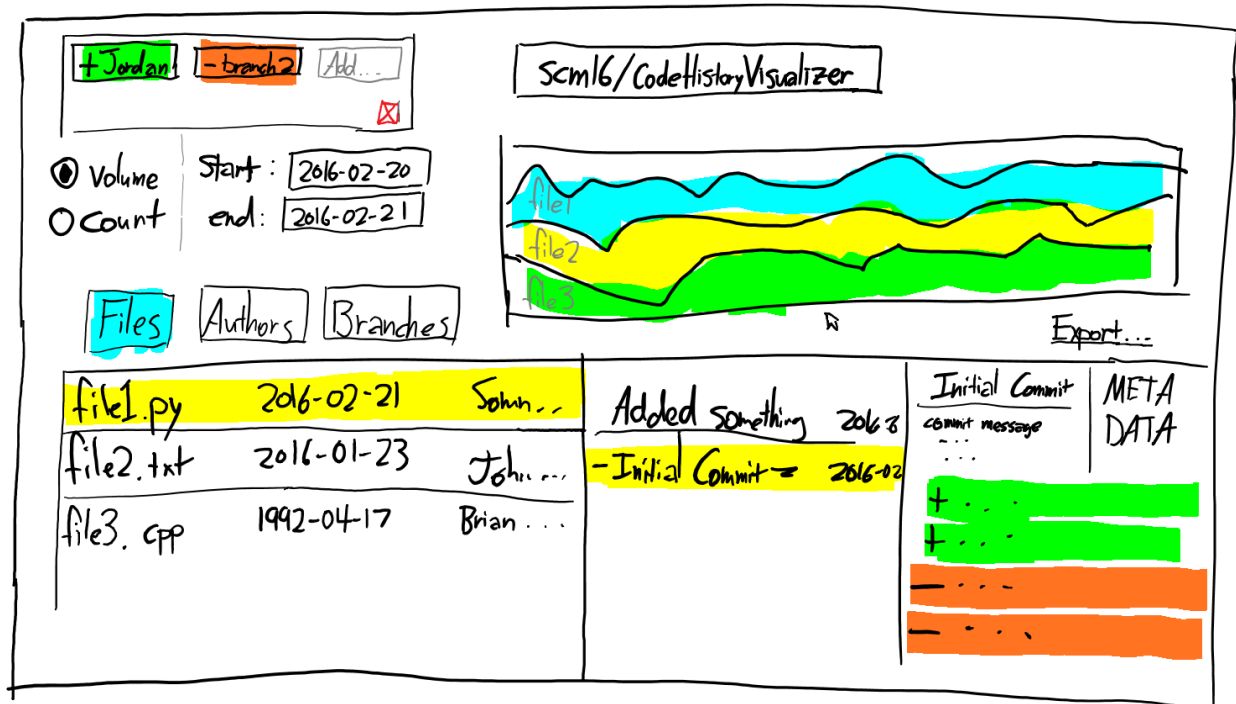 +Jordan -branch2 Add...
scm16/CodeHistoryVisualizer
Volume Start: 2016-02-20
Count end: 2016-02-21
file1
file2
file3
Export...
Files Authors Branches
file1.py 2016-02-21
file2.txt 2016-01-23 John....
file3.cpp 1992-04-17 Brian...
Added something
-Initial Commit- 2016-02
Initial Commit
commit message
...
...
META
DATA
+ . . .
+ . . .
- . . .
- . . .